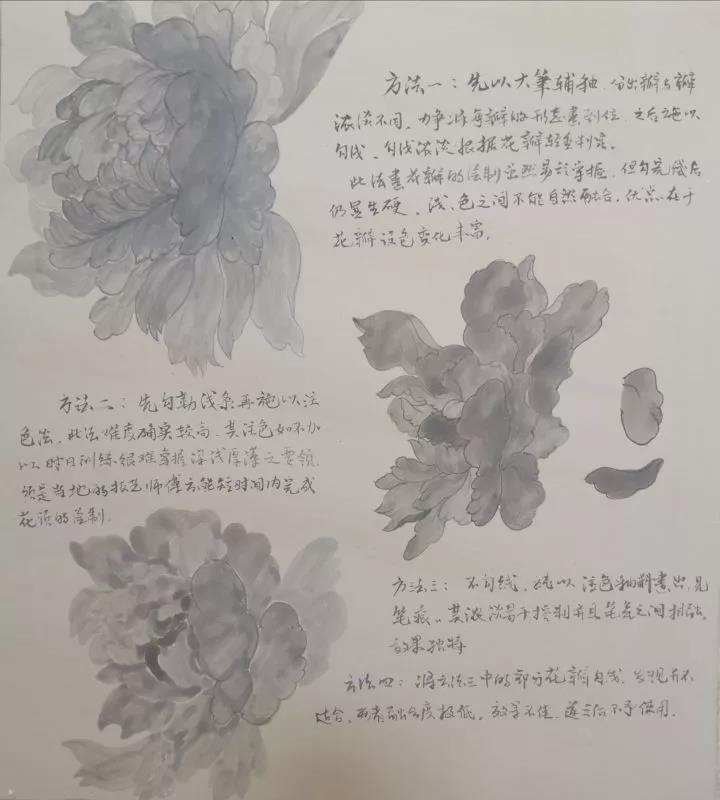 方法一：先以大筆铺釉，分出瓣与瓣
浓淡不同，力争将每瓣的形态畫到位，之后施以
勾线，勾线浓淡根据花瓣轻重判定。
此法畫花瓣的绘制虽然易於掌握，但勾完线后
仍显生硬，线、色之间不能自然融合，优点在于
花瓣设色变化丰富。
方法二：先勾勒线条再施以注
色法，此法难度确实较高，其注色如不加
以时日训练很难掌握深浅厚薄之要领，
须是当地的技艺师傅方能短时间内完成
花头的绘制。
方法三：不勾线，纯以注色釉料畫出，见
笔痕，其浓淡易于控制并且笔笔之间相融，
效果独特
方法四：将方法三中的部分花瓣勾线，发现并不
适合，两者融合度极低，效果不佳，遂之后不予使用.